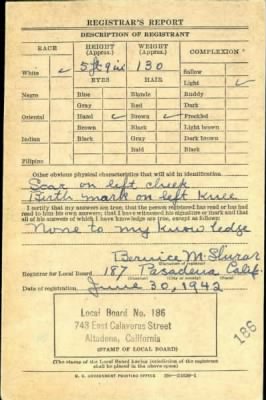 REGISTRAR'S REPORT
DESCRIPTION OF REGISTRANT
RACE HEIGHT (Approx.) WEIGHT (Approx.) COMPLEXION
White ✓ 5 ft 9 in 130 Sallow
EYES HAIR Light ✓
Negro Blue Blonde Ruddy
Gray Red Dark
Oriental Hazel ✓ Brown ✓ Freckled
Brown Black Light brown
Indian Black Gray Dark brown
Bald Black
Filipino
Other obvious physical characteristics that will aid in identification
Scar on left cheek
Birth mark on left knee
I certify that my answers are true; that the person registered has read or has had
read to him his own answers; that I have witnessed his signature or mark and that
all of his answers of which I have knowledge are true, except as follows:
None to my knowledge
Bernice M.
(Signature of registrar)
Registrar for Local Board 187 Pasadena Calif.
Date of registration June 30, 1942
Local Board No. 186
743 East Calaveras Street
Altadena, California
(STAMP OF LOCAL BOARD)
186
(The stamp of the Local Board having jurisdiction of the registrant
shall be placed in the above space)
U. S. GOVERNMENT PRINTING OFFICE